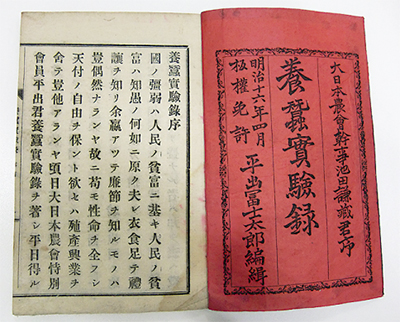 大日本農會幹事池田謙蔵君序
養蠶實驗録
明治十六年四月
板權免許
平出冨士太郎編緝
養蠶實驗録序
國ノ彊弱ハ人民ノ貧富ニ基キ人民ノ貧
富ハ知愚ノ何如ニ原ク夫レ衣食足テ禮
讓ヲ知リ余贏アリテ廉節ヲ知ルモノハ
豈偶然ナランヤ故ニ苟モ性命ヲ全フシ
天付ノ自由ヲ保ント欲セハ殖產興業ヲ
舍テ豈他アランヤ頃日大日本農會特別
會員平出君養蠶實驗録ヲ著シ平日得ル